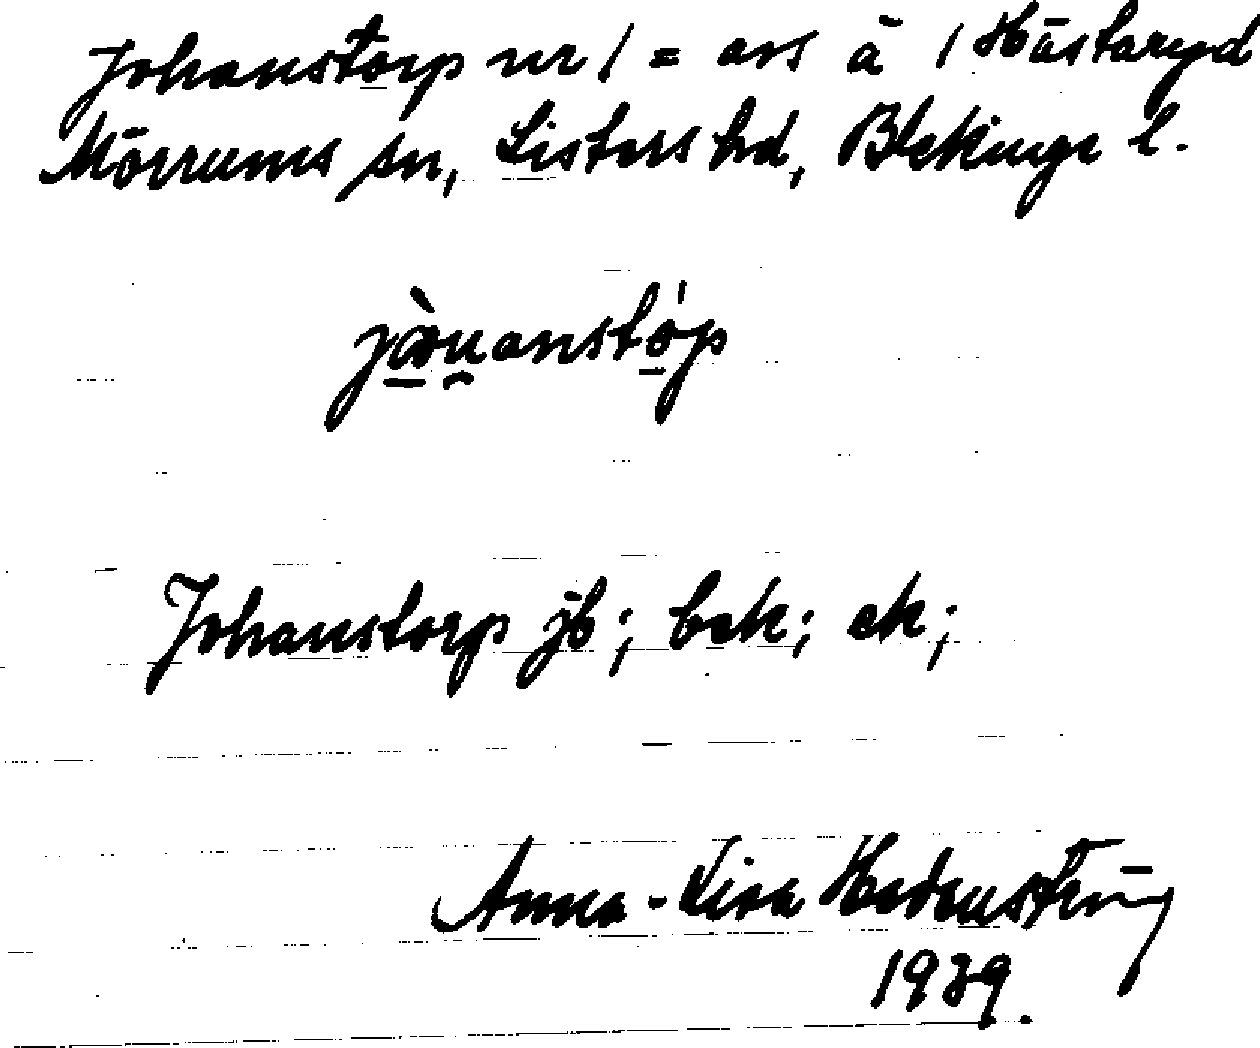 Johanstorp nr 1 = avs å 1 Hästaryd
Mörrums sn, Listers hd, Blekinge l.
Johanstorp jb; bek; ek;
Anna-Lisa Hedenström
1939.